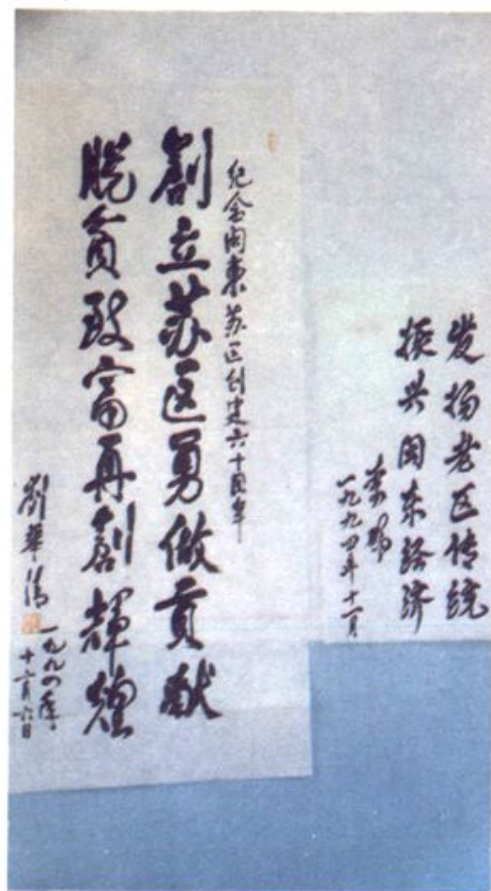 发扬老区传统
振兴闽东经济
李鹏
一九九四年十一月
纪念闽东苏区创建六十周年
創立苏区勇做貢献
脱貧致富再創輝煌
劉華清
一九九四年
十二月六日